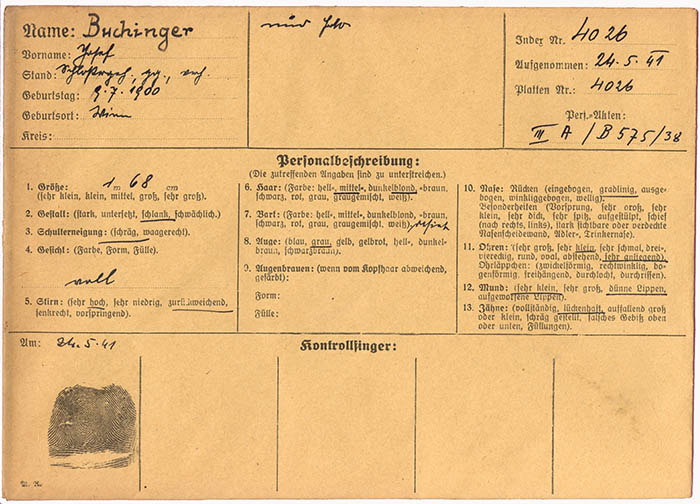 Name: Buchinger
Vorname: Josef
Stand:
Geburtstag: 9.7.1900
Geburtsort: Wien
Kreis:
Index Nr. 4026
Aufgenommen: 24.5.41
Platten Nr.: 4026
Pers.-Akten:
III A / B 575/38
Personalbeschreibung:
(Die zutreffenden Angaben sind zu unterstreichen.)
1. Größe: 1 m 68 cm
(sehr klein, klein, mittel, groß, sehr groß).
2. Gestalt: (stark, untersetzt, schlank, schwächlich).
3. Schulterneigung: (schräg, waagerecht).
4. Gesicht: (Farbe, Form, Fülle).
voll
5. Stirn: (sehr hoch, sehr niedrig, zurückweichend,
senkrecht, vorspringend).
6. Haar: (Farbe: hell-, mittel-, dunkelblond, -braun,
schwarz, rot, grau, graugemischt, weiß).
7. Bart: (Farbe: hell-, mittel-, dunkelblond, -braun,
schwarz, rot, grau, graugemischt, weiß), rasiert
8. Auge: (blau, grau, gelb, gelbrot, hell-, dunkel-
braun, schwarzbraun).
9. Augenbrauen: (wenn vom Kopfhaar abweichend,
gefärbt):
Form:
Fülle:
10. Nase: Rücken (eingebogen, gradlinig, ausge-
bogen, winkliggebogen, wellig).
Besonderheiten (Vorsprung, sehr groß, sehr
klein, sehr dick, sehr spitz, aufgestülpt, schief
(nach rechts, links), stark sichtbare oder verdeckte
Nasenscheidewand, Adler-, Trinkernase).
11. Ohren: (sehr groß, sehr klein, sehr schmal, drei-,
viereckig, rund, oval, abstehend, sehr anliegend).
Ohrläppchen: (zwickelförmig, rechtwinklig, bo-
genförmig, freihängend, durchlocht, durchrissen).
12. Mund: (sehr klein, sehr groß, dünne Lippen,
aufgeworfene Lippen).
13. Zähne: (vollständig, lückenhaft, auffallend groß
oder klein, schräg gestellt, falsches Gebiß oben
oder unten, Füllungen).
Am: 24.5.41
Kontrollfinger: